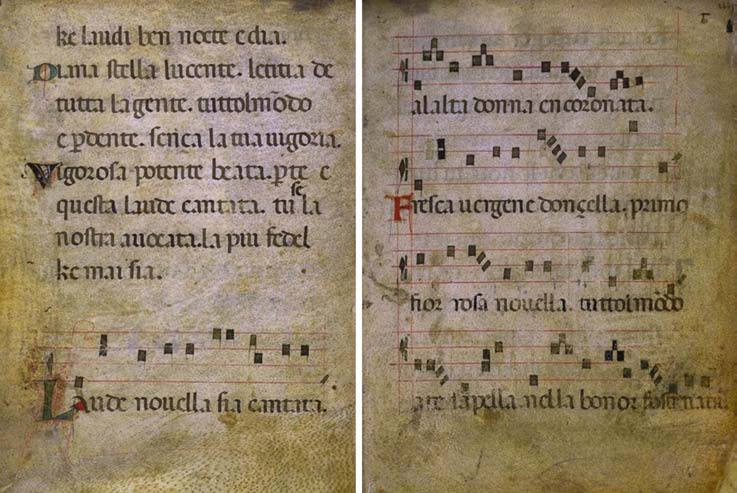 ke laudi ben nocte e dia.
Diana stella lucente. letitia de
tutta la gente. tuttolmōdo
e ꝑdente. sença la tua uigoria.
Vigorosa potente beata. ꝑ te e
questa laude cantata. tu se la
nostra auocata. la piu fedel
ke mai sia.
Laude nouella sia cantata.
al alta donna encoronata.
Fresca uergene donçella. primo
fior rosa nouella. tuttolmōdo
a te sapella. nella bonor